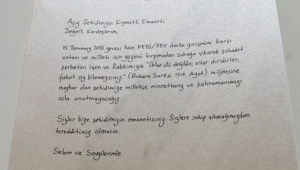 Aziz Şehidimizin Kıymetli Emaneti
Değerli Kardeşlerim,
15 Temmuz 2016 gecesi hain FETÖ/PDY darbe girişimine karşı
vatanı ve milleti için göğsünü kırpmadan sokağa çıkarak şehadet
şerbetini içen ve Rabbimizin "Onlar ölü değildir, onlar diridirler,
fakat siz bilemezsiniz" (Bakara Suresi 154. Ayet) müjdesine
mazhar olan şehidimize milletçe minnettarız ve kahramanımızı
asla unutmayacağız.
Sizler bize şehidimizin emanetisiniz. Sizlere sahip çıkacağımızdan
tereddütünüz olmasın.
Selam ve Sevgilerimle.